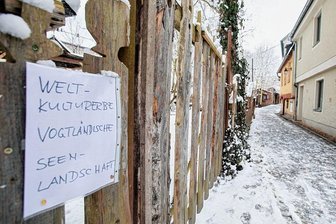 WELT-
KULTURERBE
VOGTLÄNDISCHE
SEEN-
LANDSCHAFT